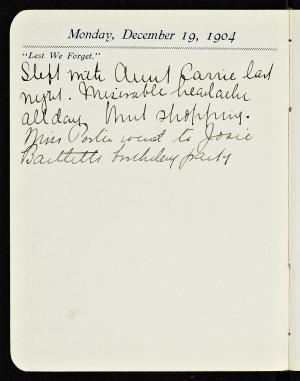 Monday, December 19, 1904
"Lest We Forget."
Slept with Aunt Carrie last
night. Miserable headache
all day. Went shopping.
Miss Porter went to Josie
Bartletts birthday party